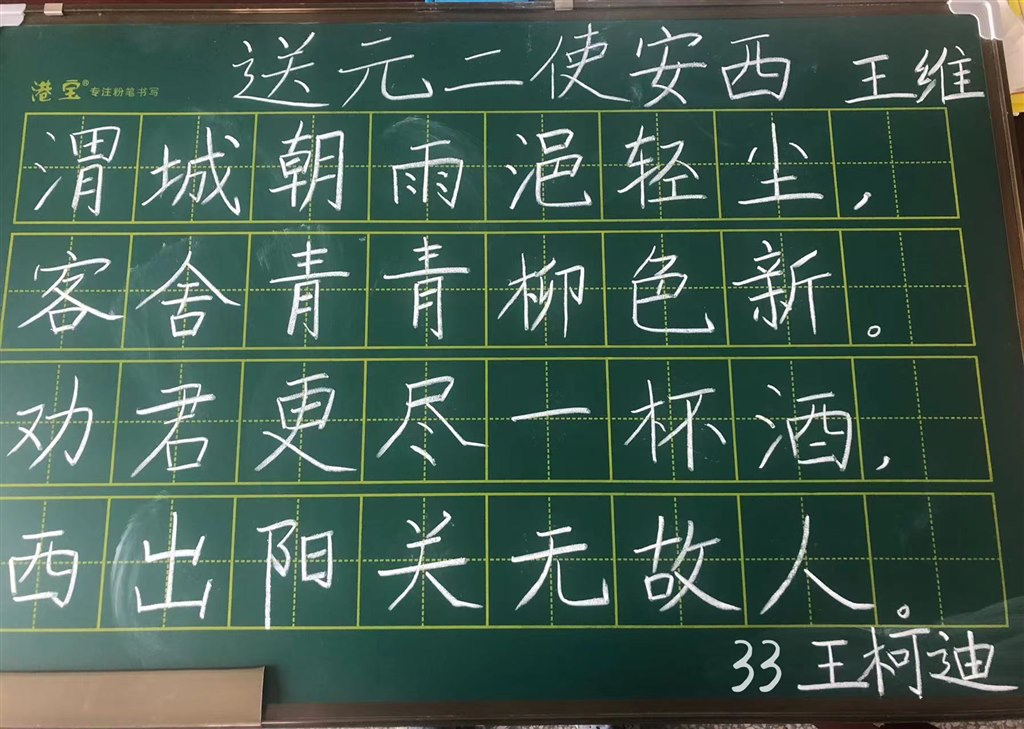 送元二使安西 王维
港宝® 专注粉笔书写
渭城朝雨浥轻尘，
客舍青青柳色新。
劝君更尽一杯酒，
西出阳关无故人。
33 王柯迪